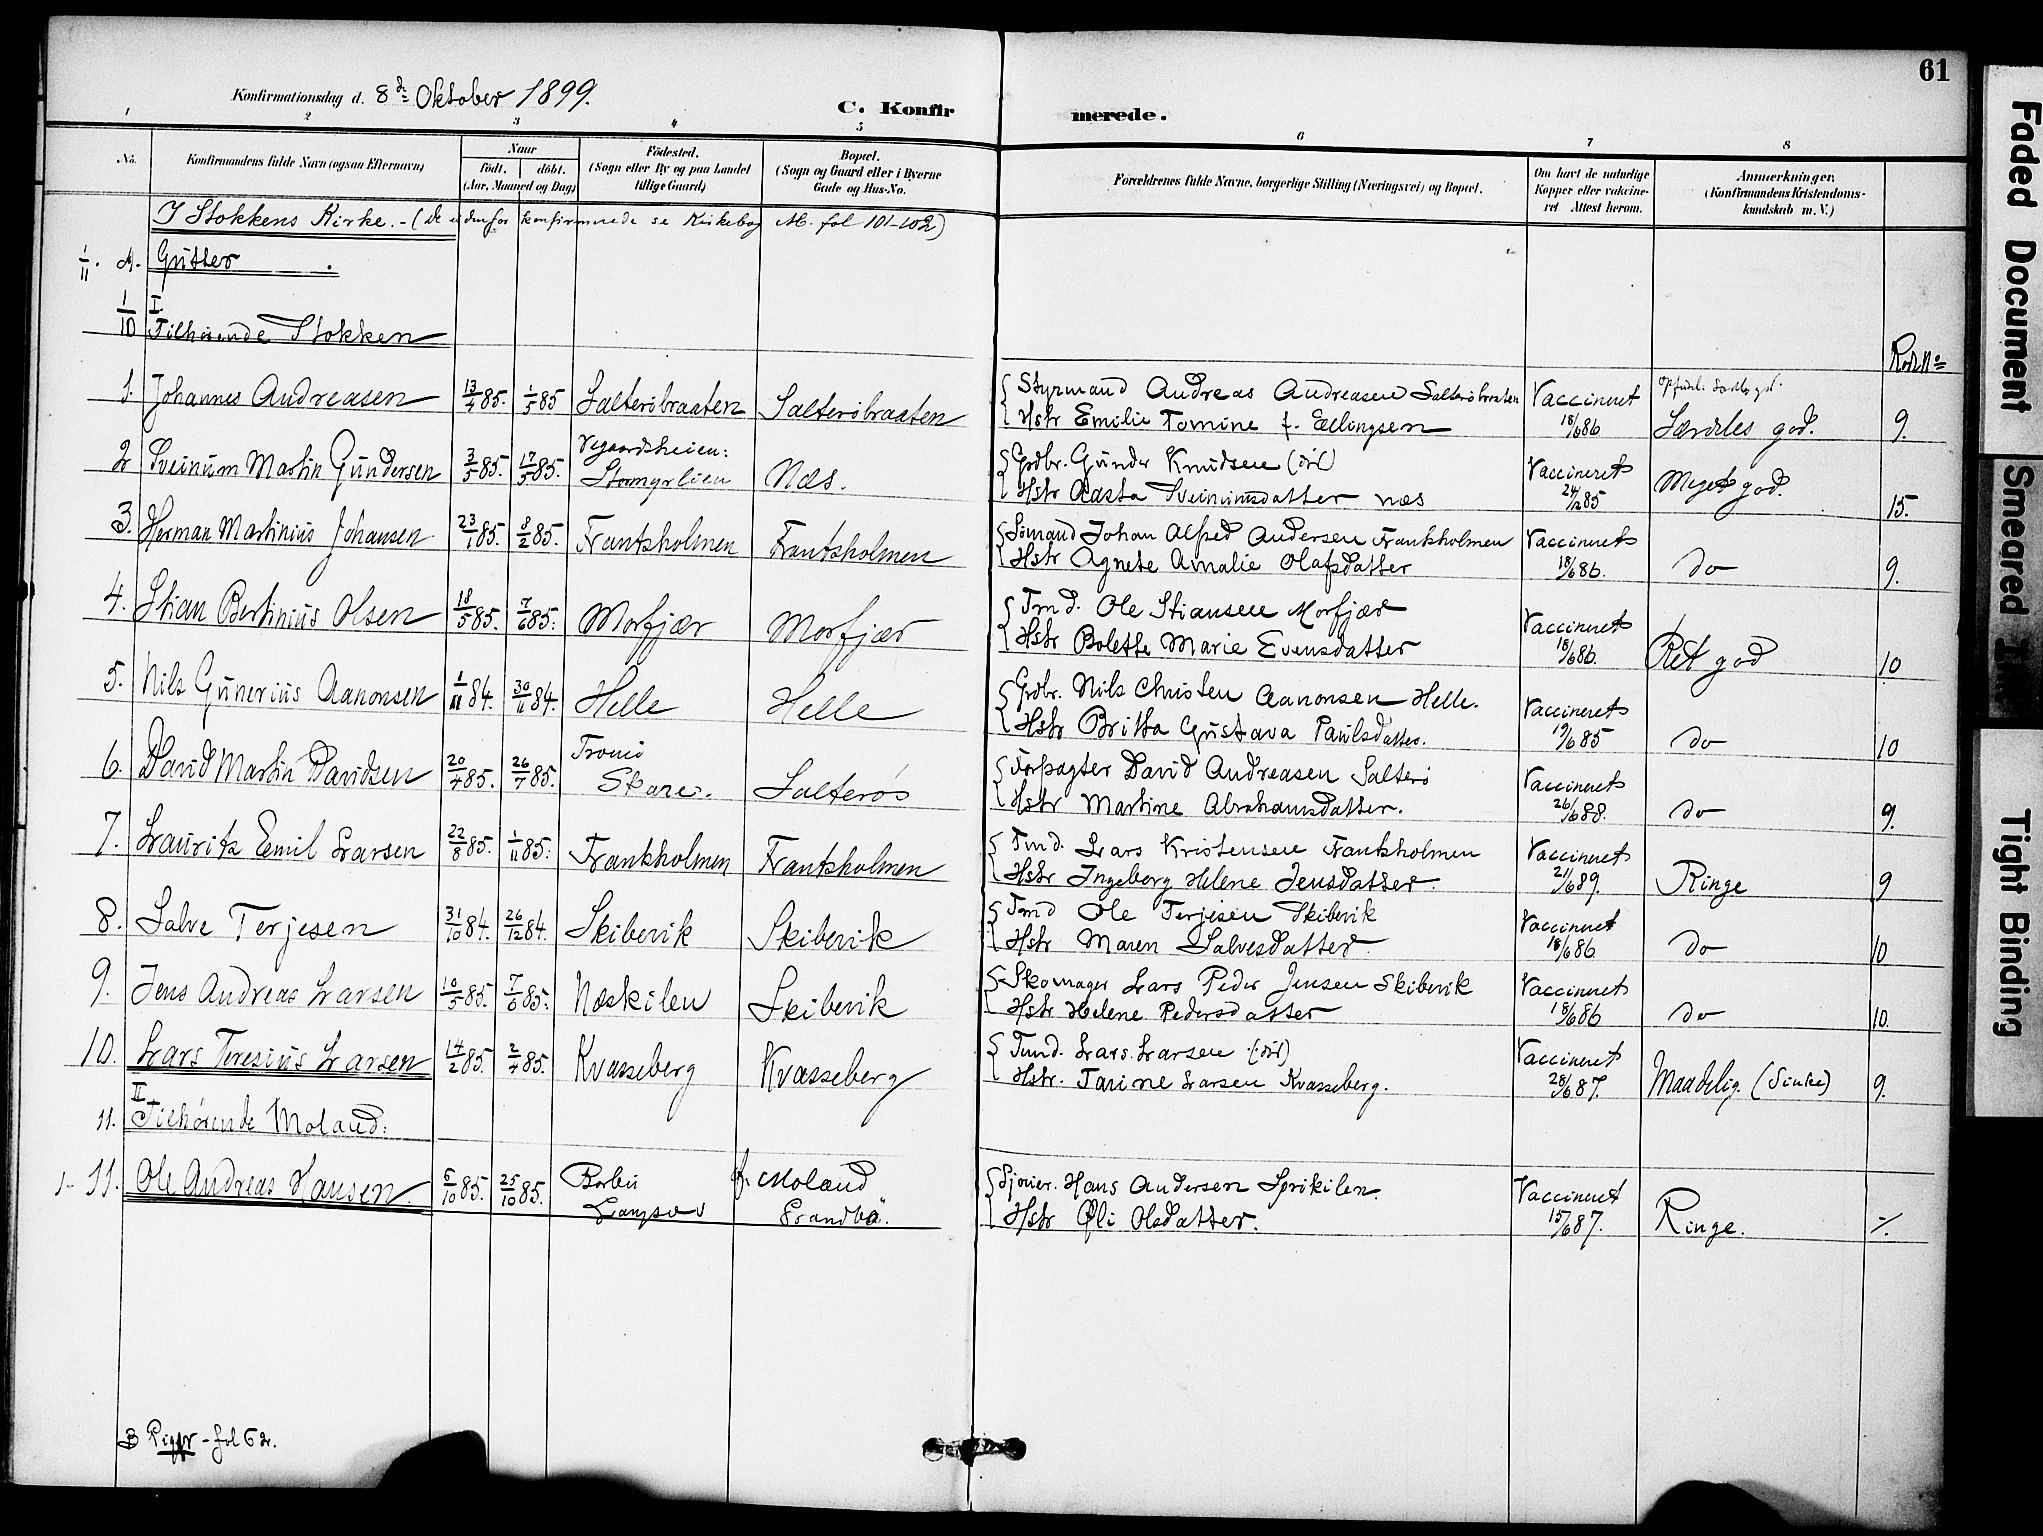 61
Konfirmationsdag d. 8de Oktober 1899.
C. Konfirmerede.
1 2 3 4 5 6 7 8
No.
Konfirmandens fulde Navn (ogsaa Efternavn)
Naar
født. døbt.
(Aar, Maaned og Dag)
Fødested.
(Sogn eller By og paa Landet
tillige Gaard)
Bopæl.
(Sogn og Gaard eller i Byerne
Gade og Hus-No.
Forældrenes fulde Navne, borgerlige Stilling (Næringsvei) og Bopæl.
Om havt de naturlige
Kopper eller vaccine-
ret Attest herom.
Anmærkninger.
(Konfirmandens Kristendoms-
kundskab m. V.)
I Stokkens Kirke. - (de udenfor konfirmerede se Kirkebog M. fol 101-102)
1/11. A. Gutter.
1/10 I
Tilhørende Stokken
Rode No
1. Johannes Andreasen 13/4 85. 1/5 85 Salterøbraaten Salterøbraaten Styrmand Andreas Andreasen Salterøbraaten Vaccineret
Hstr Emilie Tomine f. Ellingsen 18/6 86 Særdeles god. 9.
2 Sveinum Martin Gundersen 3/5 85. 17/5 85. Vegaardsheien: Stormyrlien Næs. Grdbr. Gunder Knudsen (død) Vaccineret
Hstr Aasta Sveinumsdatter næs 24/12 85 Meget god. 15.
3. Herman Martinius Johansen 23/1 85. 8/2 85. Frantsholmen Frantsholmen Sømand Johan Alfred Andersen Frantsholmen Vaccineret
Hstr Agnete Amalie Olafsdatter 18/6 86. do 9.
4. Stian Bertinius Olsen 18/5 85. 7/6 85. Morfjær Morfjær Tmd. Ole Stiansen Morfjær Vaccineret
Hstr Bolette Marie Evensdatter 18/6 86. Ret god 10
5. Nils Gunerius Aanonsen 1/11 84. 30/11 84. Helle Helle Grdbr. Nils Christen Aanonsen Helle. Vaccineret
Hstr Britta Gustava Paulsdatter. 19/6 85 do 10
6. David Martin Davidsen 20/4 85. 26/7 85. Tromø Skare. Salterøs Forpagter David Andreasen Salterø Vaccineret
Hstr Martine Abrahamsdatter. 26/6 88. do 9.
7. Lauritz Emil Larsen 22/8 85. 1/11 85. Frantsholmen Frantsholmen Tmd. Lars Kristensen Frantsholmen Vaccineret
Hstr Ingeborg Helene Jensdatter. 21/6 89. Ringe 9
8. Salve Terjesen 31/10 84. 26/12 84. Skibevik Skibevik Tmd Ole Terjesen Skibevik Vaccineret
Hstr Maren Salvesdatter. 18/6 86. do 10
9. Jens Andreas Larsen 10/5 85. 7/6 85. Næskilen Skibevik Skomager Lars Peder Jensen Skibevik Vaccineret
Hstr Helene Pedersdatter 18/6 86 do 10.
10. Lars Teresius Larsen 14/2 85. 2/4 85. Kvasseberg Kvasseberg Tmd. Lars Larsen (død) Vaccineret
Hstr. Tarine Larsen Kvasseberg. 28/6 87. Maadelig. (Sinke) 9.
II
11. Tilhørende Moland:
1- 11. Ole Andreas Hansen. 6/10 85. 25/10 85. Barbu Langsæv f. Moland Hans Andersen Vaccineret
Hstr Øli Olsdatter. 15/6 87. Ringe.
B Piger - fol 62.
Faded Document Smeared Ink Tight Binding